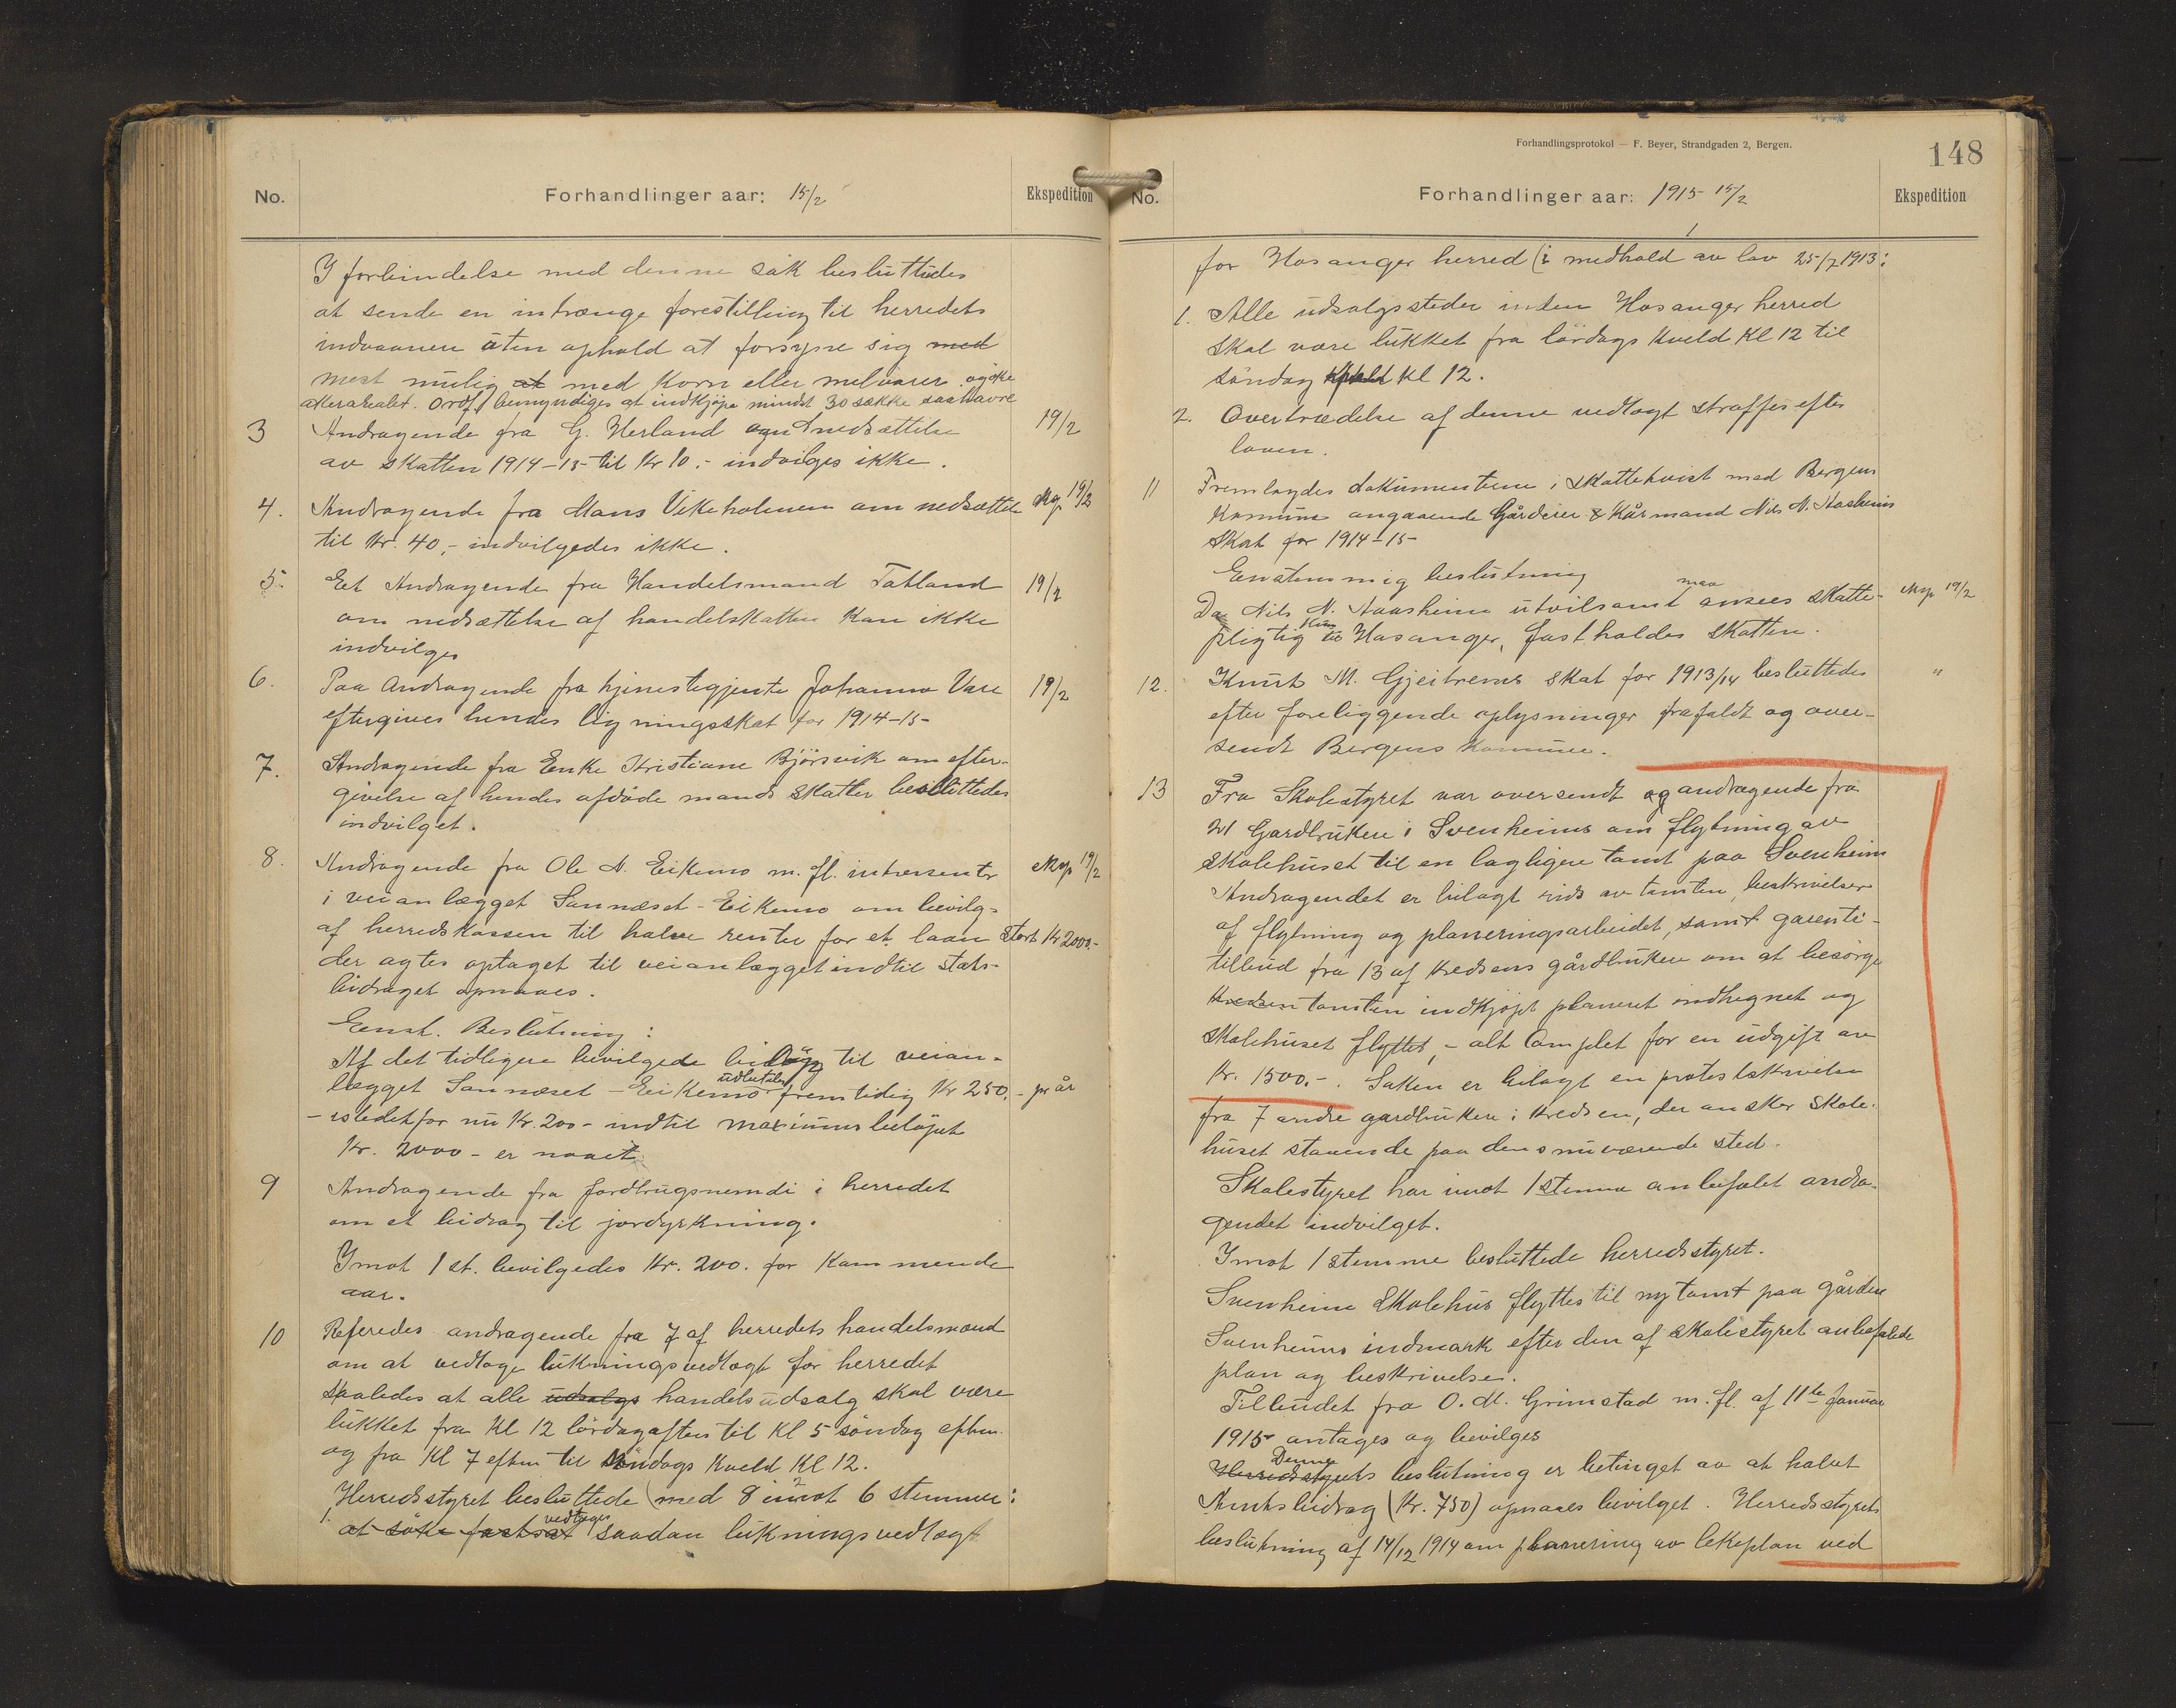 No.
Forhandlinger aar: 15/2
Ekspedition
I forbindelse med denne sak besluttedes
at sende en intrænge forestilling til herredets
indvaanere uten ophold at forsyne sig med
mest mulig at med korn eller melvarer og øke
akerarealet. Ordf. bemyndiges at indkjøpe mindst 30 sække saahavre
3 Andragende fra G. Herland om nedsættelse 19/2
av skatten 1914-15 til Kr 10.- indvilges ikke.
4. Andragende fra Mons Vikeholmen om nedsættelse 19/2
til Kr. 40,- indvilgedes ikke.
5. Et Andragende fra Handelsmand Tatland 19/2
om nedsættelse af handelskatten kan ikke
indvilges
6. Paa Andragende fra tjenestegjente Johanna Vare 19/2
eftergives hendes ligningsskat for 1914-15-
7. Andragende fra Enke Kristiane Bjørsvik om efter-
givelse af hendes afdøde mands skatter besluttedes
indvilget.
8. Andragende fra Ole N. Eikemo m. fl. intresenter 19/2
i veianlægget Sannæset - Eikemo om bevilg-
af herredskassen til halve renter for et laan stort Kr 2000.-
der agtes optaget til veianlægget indtil stats-
bidraget opnaaes.
Eenst. Beslutning:
Af det tidligere bevilgede bidrag til veian-
lægget Sannæset - Eikemo udbetales fremtidig Kr 250.- pr år
- istedetfor nu Kr. 200 - indtil maximumsbeløpet
Kr. 2000 - er naaet.
9 Andragende fra jordbrugsnemdi i herredet
om et bidrag til jordyrkning.
Imot 1 st. bevilgedes Kr. 200. for kommende
aar.
10 Referedes andragende fra 7 af herredets handelsmænd
om at vedtage lukningsvedtægt for herredet
saaledes at alle udsalgs handelsudsalg skal være
lukket fra Kl 12 lördagaften til Kl 5 søndag efterm.
og fra Kl 7 efterm til söndags kveld Kl 12.
Herredsstyret besluttede (med 8 imot 6 stemmer:
1. at søke fastsat vedtages saadan lukningsvedtægt
Forhandlingsprotokol — F. Beyer, Strandgaden 2, Bergen.
148
No.
Forhandlinger aar: 1915 15/2
Ekspedition
for Hosanger herred (i medhold av lov 25/7 1913:
1. Alle udsalgssteder inden Hosanger herred
skal være lukket fra lördags kveld Kl 12 til
söndag kveld Kl 12.
2. Overtrædelse af denne vedtægt straffes efter
loven.
11 Fremlagdes dokumentene i skattetvist med Bergens
Komune angaaende Gårdeier & Kårmand Nils N. Aasheims
skat for 1914-15-
Eenstemmig beslutning
Da Nils N. Aasheim utvilsomt maa ansees skatte- 19/2
pligtig kun til Hosanger, fastholdes skatten.
12. Knut M. Gjeitrems skat for 1913/14 besluttedes "
efter foreliggende oplysninger frafaldt og over-
sendt Bergens Kommune.
13 Fra Skolestyret var oversendt og andragende fra
21 Gardbrukere i Svenheims om flytning av
skolehuset til en lagligere tomt paa Svenheim
Andragendet er bilagt rids av tomten, beskrivelser
af flytning og planeringsarbeidet, samt garenti-
tilbud fra 13 af kredsens gårdbrukere om at besörge
kredsen tomten indkjøpt planeret indhegnet og
skolehuset flyttet, - alt Complet for en udgift av
Kr. 1500.-. Saken er bilagt en protestskrivelse
fra 7 andre gardbrukere i kredsen, der ønsker skole-
huset staaende paa dens nuværende sted.
Skolestyret har imot 1 stemme anbefalet andra-
gendet indvilget.
Imot 1 stemme besluttede herredsstyret.
Svenheim Skolehus flyttes til ny tomt paa gården
Svenheims indmark efter den af skolestyret anbefalede
plan og beskrivelse.
Tilbudet fra O. M. Grimstad m. fl. af 11te Januar
1915 antages og bevilges
Herredsstyrets Denne beslutning er betinget av at halvt
Amtsbidrag (Kr. 750) opnaaes bevilget. Herredsstyrets
beslutning af 14/12 1914 om planering av lekeplan ved